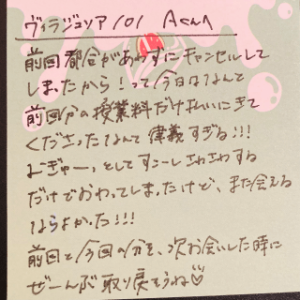 ヴィラジュリア101 Aさん
前回都合があわずにキャンセルして
しまったから!って今日はなんと
前回分の授業料だけはらいにきて
くださったなんて律義すぎる!!!
むぎゅーっとしてすこーしさわさわする
だけでおわってしまったけど、また会える
ならよかった!!!
前回と今回の分を、次お会いした時に
ぜーんぶ取り戻そうね♡